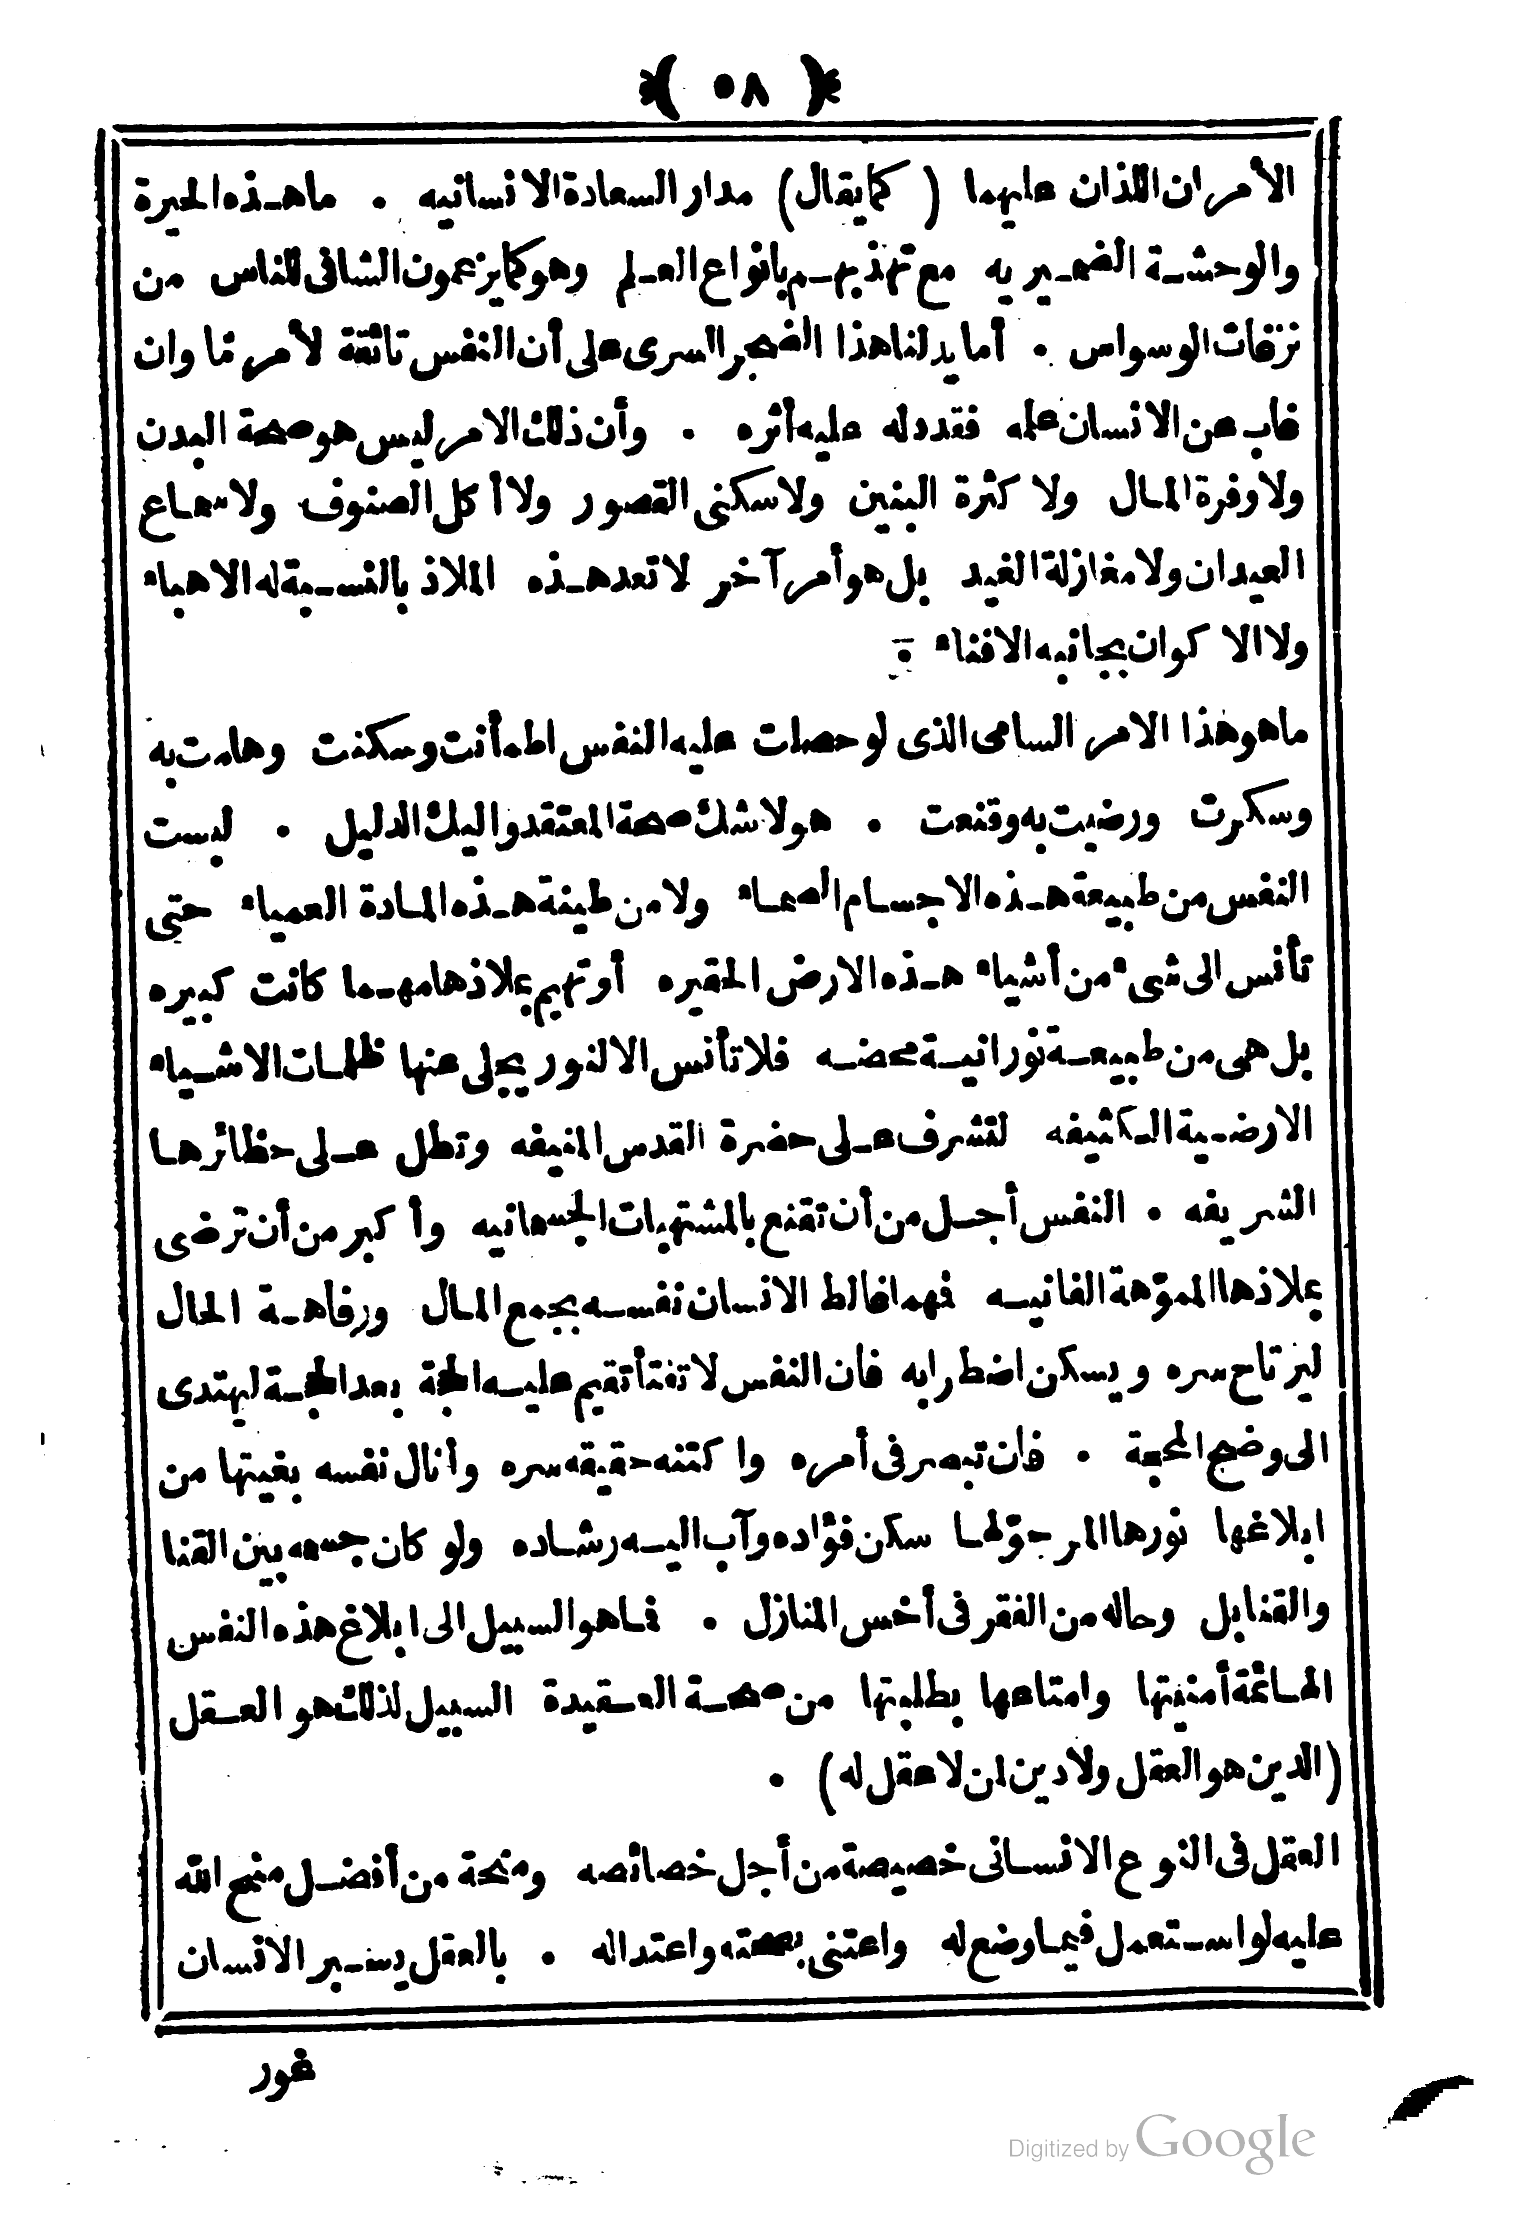 ﴿ ٥٨ ﴾
الأمران اللذان عليهما ( كما يقال ) مدار السعادة الانسانيه . ما هذه الحيرة
والوحشة الضميريه مع تهذبهم بانواع العلم وهو كما يزعمون الشافى للناس من
نزقات الوسواس . أما يدلنا هذا الضجر السرى على أن النفس تائقة لأمر ما وان
غاب عن الانسان علمه فقد دله عليه أثره . وأن ذلك الامر ليس هو صحة البدن
ولا وفرة المال ولا كثرة البنين ولا سكنى القصور ولا أكل الصنوف ولا سماع
العيدان ولا مغازلة الغيد بل هو أمر آخر لا تعد هذه الملاذ بالنسبة له الا هباء
ولا الاكوان بجانبه الا فناء ة
ما هو هذا الامر السامى الذى لو حصلت عليه النفس اطمأنت وسكنت وهامت به
وسكرت ورضيت به وقنعت . هو لا شك صحة المعتقد واليك الدليل . ليست
النفس من طبيعة هذه الاجسام الصماء ولا من طينة هذه المادة العمياء حتى
تأنس الى شىء من أشياء هذه الارض الحقيره أو تهيم بملاذها مهما كانت كبيره
بل هى من طبيعة نورانية محضه فلا تأنس الا لنور يجلى عنها ظلمات الاشياء
الارضية الكثيفه لتشرف على حضرة القدس المنيفه وتطل على حظائرها
الشريفه . النفس أجل من أن تقنع بالمشتهيات الجسمانيه وأكبر من أن ترضى
بملاذها المموّهة الفانيه فهما غالط الانسان نفسه بجمع المال ورفاهة الحال
ليرتاح سره ويسكن اضطرابه فان النفس لا تفتأ تقيم عليه الحجة بعد الحجة ليهتدى
الى وضح المحجة . فان تبصر فى أمره واكتنه حقيقة سره وأنال نفسه بغيتها من
ابلاغها نورها المرجوّ لها سكن فؤاده وآب اليه رشاده ولو كان جسمه بين القنا
والقنابل وحاله من الفقر فى أخس المنازل . فما هو السبيل الى ابلاغ هذه النفس
الهائمة أمنيتها وامتاعها بطلبتها من صحة العقيدة السبيل لذلك هو العقل
(الدين هو العقل ولا دين لمن لا عقل له) .
العقل فى النوع الانسانى خصيصة من أجل خصائصه ومنحة من أفضل منح الله
عليه لو استعمل فيما وضع له واعتنى بصحته واعتداله . بالعقل يسبر الانسان
غور
Digitized by Google